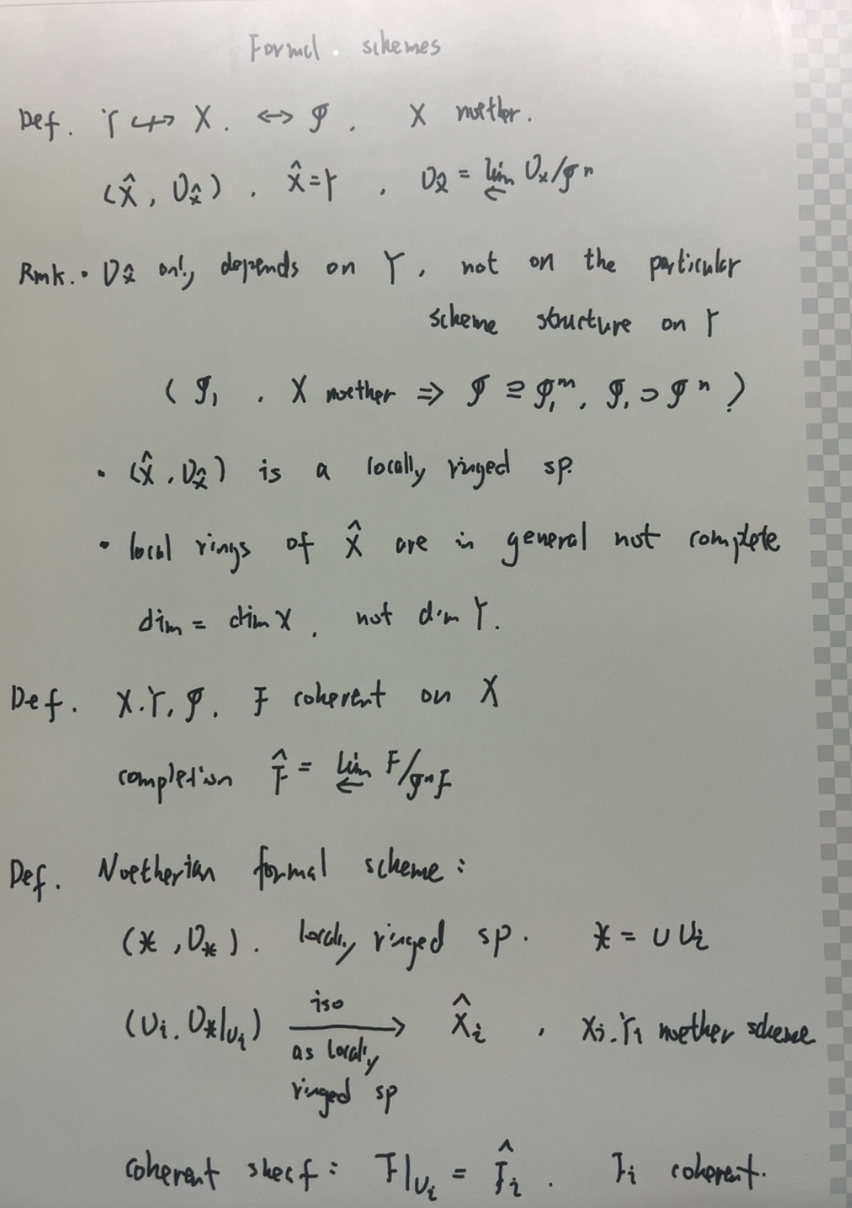 Formal schemes
Def. Y ↪ X. ↔ 𝓘. X noether.
(X̂, O_X̂). X̂ = Y, O_X̂ = lim← O_X/𝓘ⁿ
Rmk. • O_X̂ only depends on Y, not on the particular
scheme structure on Y
(𝓘₁. X noether ⇒ 𝓘 ⊇ 𝓘₁ᵐ, 𝓘₁ ⊃ 𝓘ⁿ)
• (X̂, O_X̂) is a locally ringed sp.
• local rings of X̂ are in general not complete
dim = dim X, not dim Y.
Def. X.Y, 𝓘. F coherent on X
completion F̂ = lim← F/𝓘ⁿF
Def. Noetherian formal scheme:
(𝔛, O_𝔛). locally ringed sp. 𝔛 = ∪ U_i
(U_i. O_𝔛|U_i) iso → X̂_i, X_i.Y_i noether scheme
as locally
ringed sp
coherent sheaf: F|U_i = F̂_i. F_i coherent.